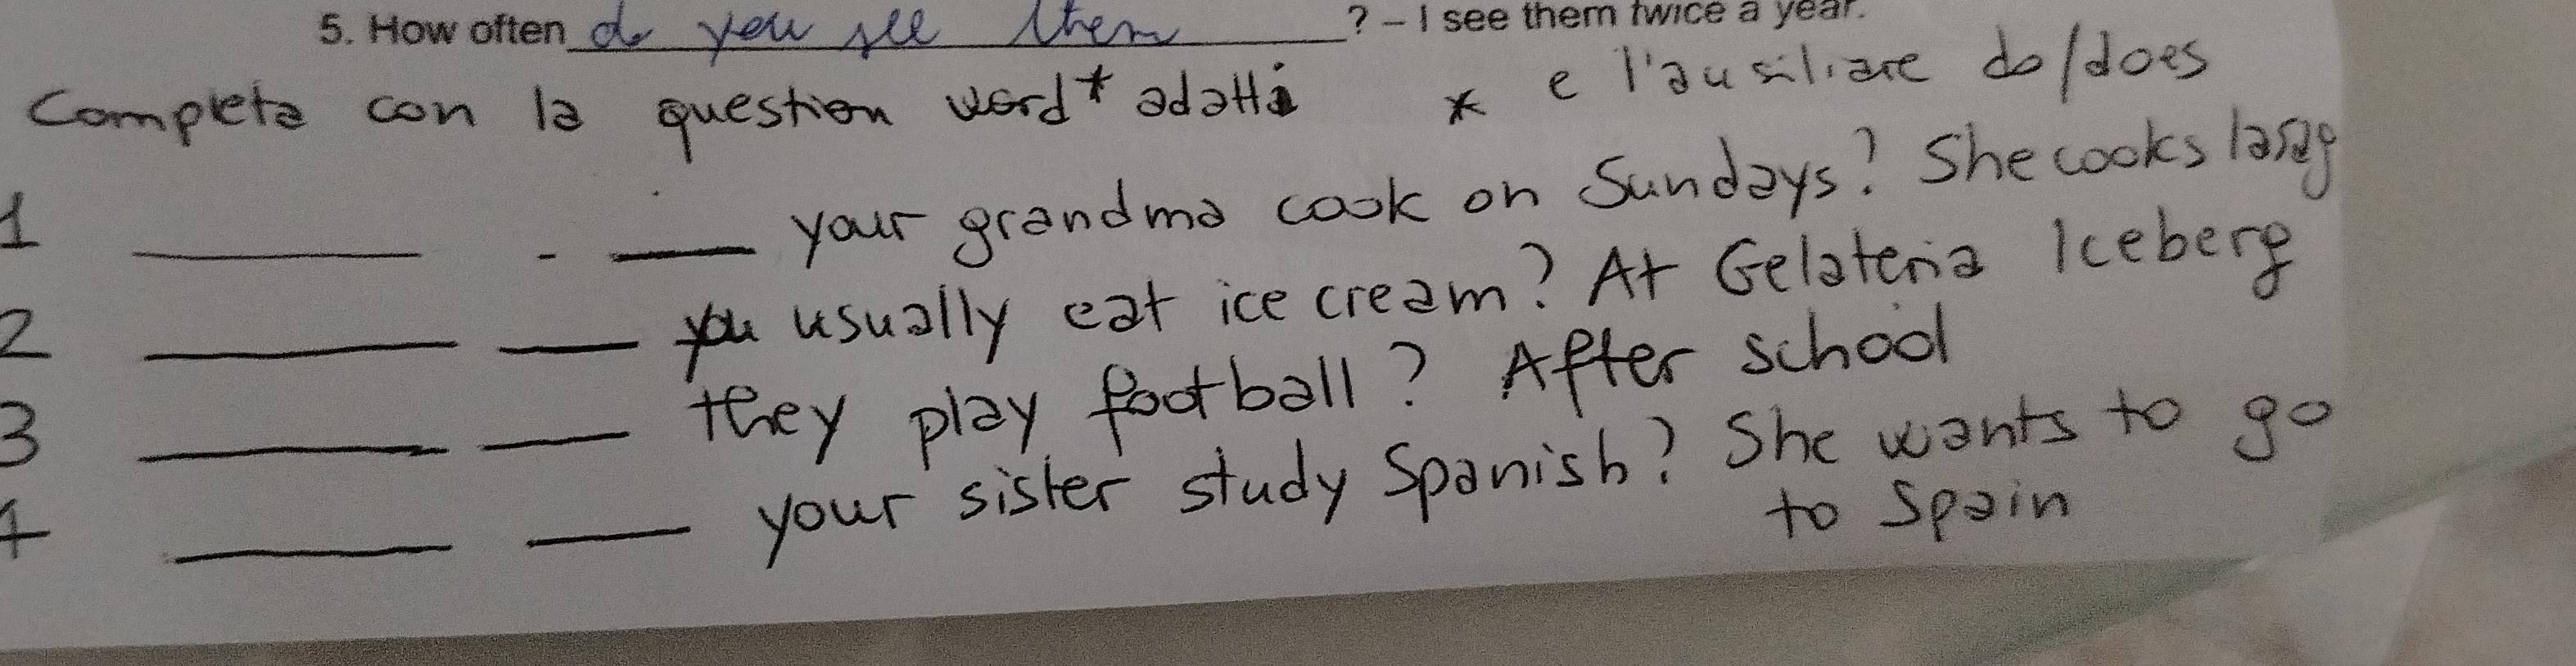 5. How often do you see them ? – I see them twice a year.
Completa con la question word* adatta * e l'ausiliare do/does
1 ______ - ____ your grandma cook on Sundays? She cooks lasag
2 ______ ____ you usually eat ice cream? At Gelateria Iceberg
3 ______ ____ they play football? After school
4 ______ ____ your sister study Spanish? She wants to go
to Spain